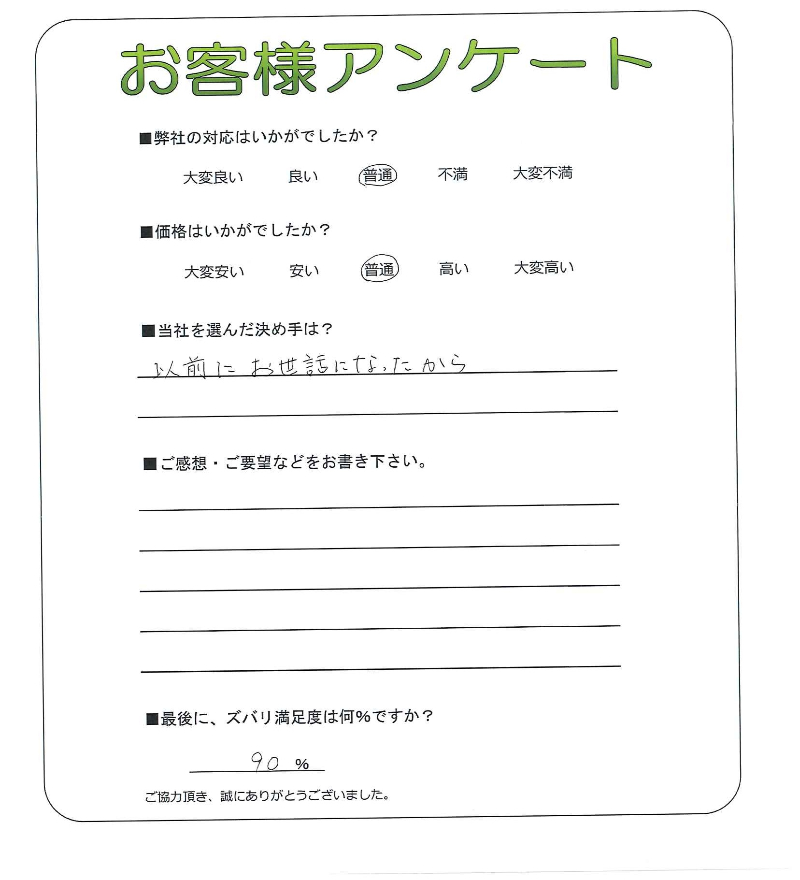 お客様アンケート
■弊社の対応はいかがでしたか？
大変良い 良い 普通 不満 大変不満
■価格はいかがでしたか？
大変安い 安い 普通 高い 大変高い
■当社を選んだ決め手は？
以前にお世話になったから
■ご感想・ご要望などをお書き下さい。
■最後に、ズバリ満足度は何%ですか？
90 %
ご協力頂き、誠にありがとうございました。